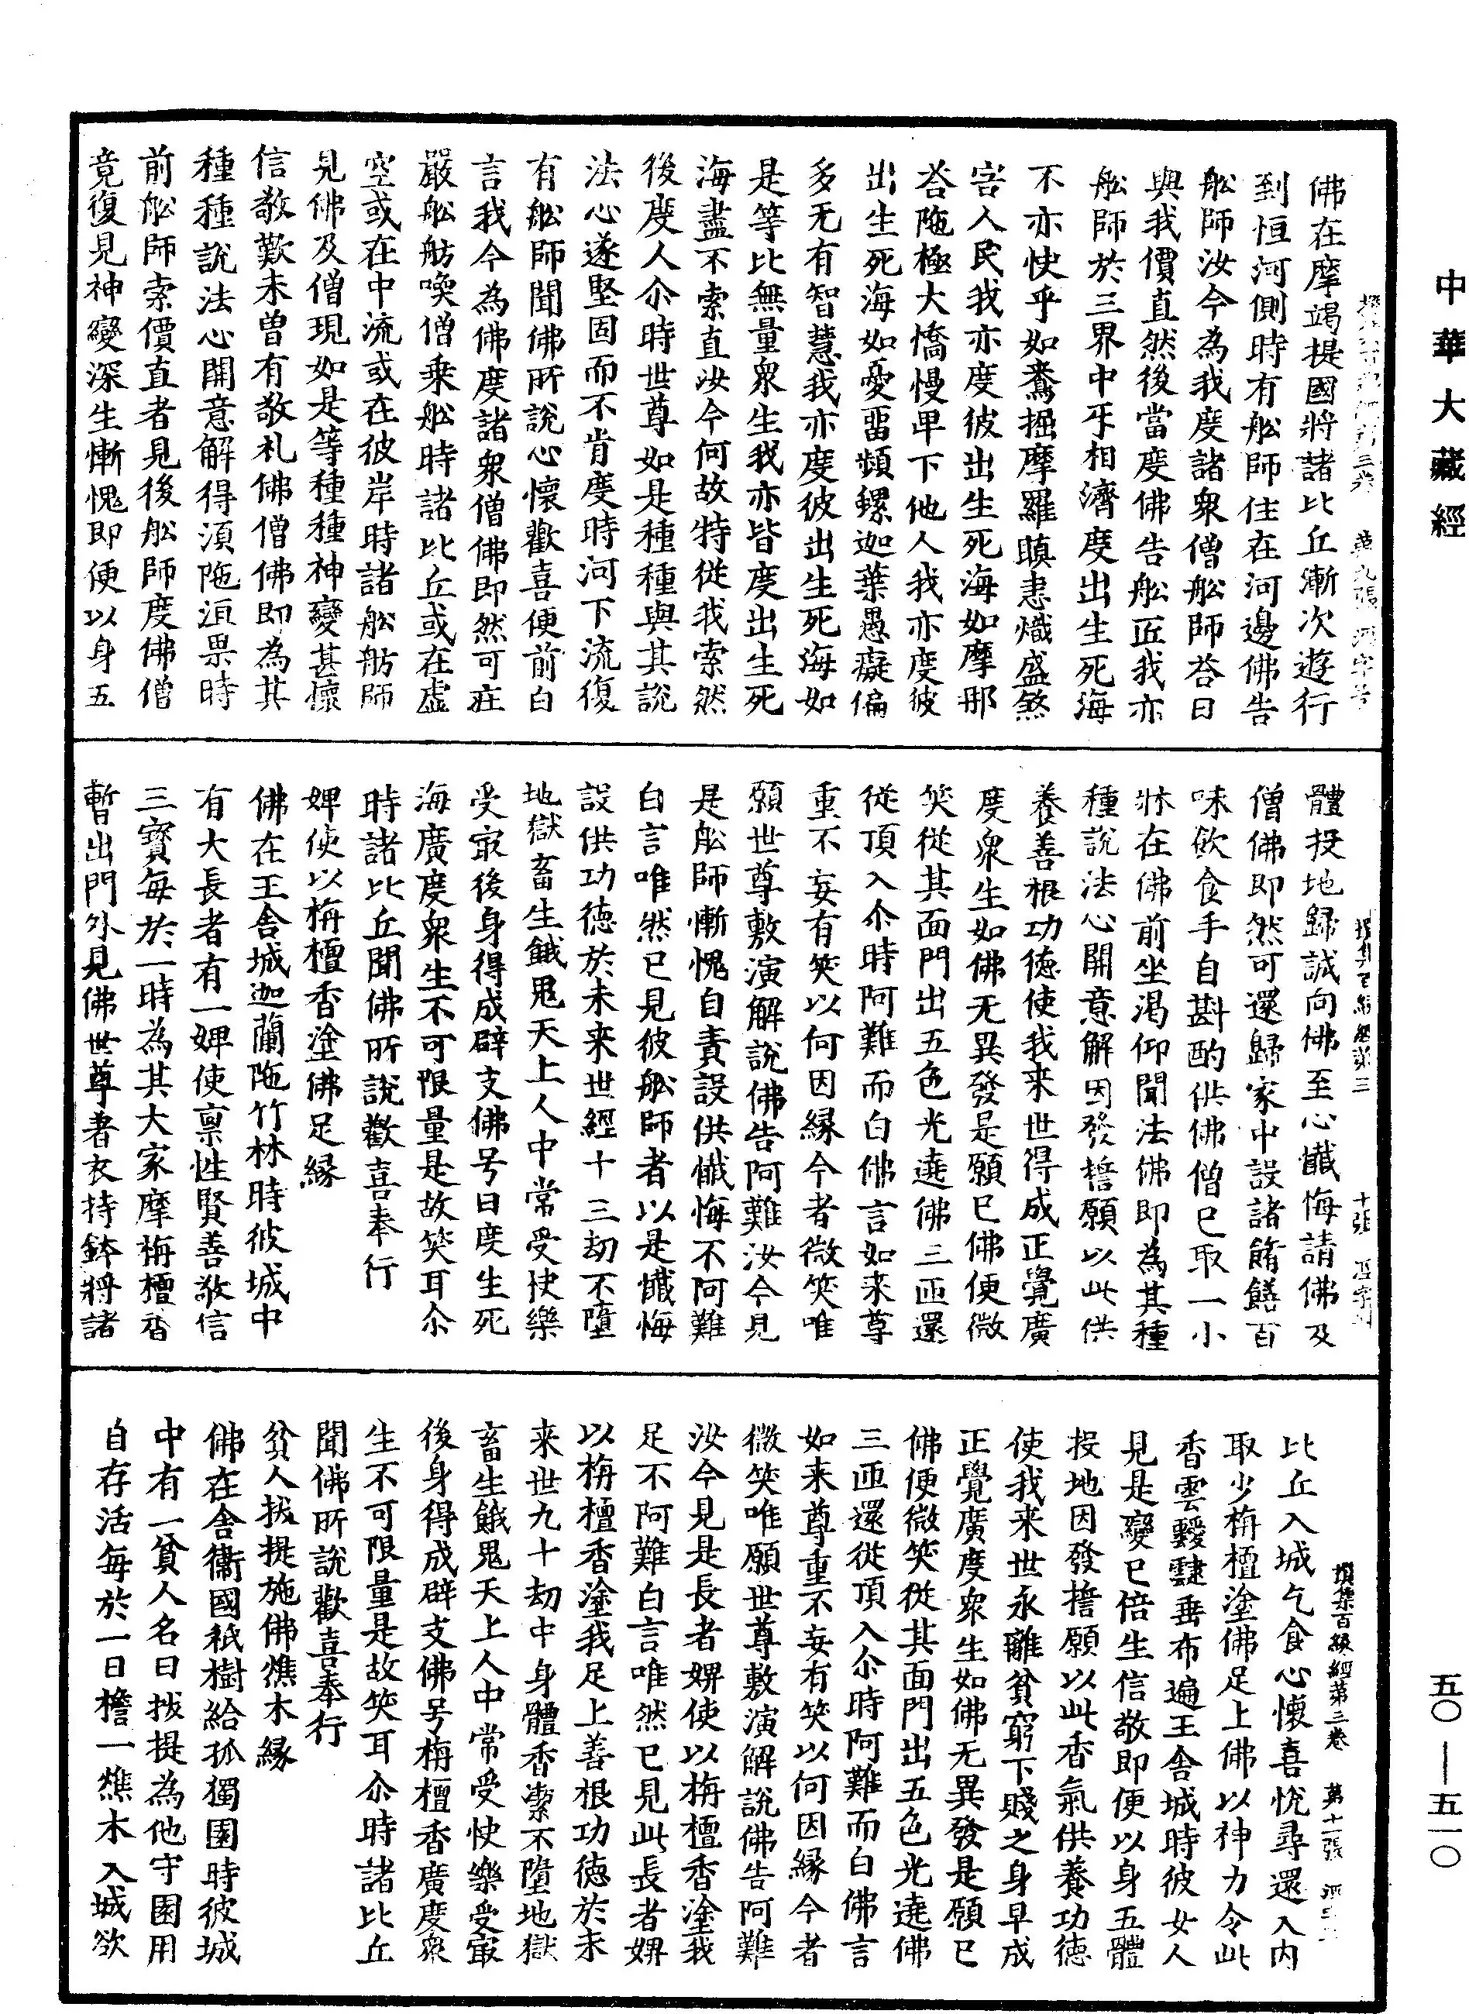 中華大藏經
佛在摩竭提國將諸比丘漸次遊行
到恒河側時有舩師住在河邊佛告
舩師汝今為我度諸衆僧舩師荅曰
與我價直然後當度佛告舩匠我亦
舩師於三界中㸦相濟度出生死海
不亦快乎如鴦掘摩羅瞋恚熾盛煞
害人民我亦度彼出生死海如摩那
荅陁極大憍慢卑下他人我亦度彼
出生死海如憂留頻螺迦葉愚癡偏
多无有智慧我亦度彼出生死海如
是等比無量衆生我亦皆度出生死
海盡不索直汝今何故特從我索然
後度人尒時世尊如是種種與其說
法心遂堅固而不肯度時河下流復
有舩師聞佛所說心懷歡喜便前白
言我今為佛度諸衆僧佛即然可疘
嚴舩舫喚僧乘舩時諸比丘或在虛
空或在中流或在彼岸時諸舩舫師
見佛及僧現如是等種種神變甚懷
信敬歎未曾有敬礼佛僧佛即為其
種種說法心開意解得湏陁洹果時
前舩師索價直者見後舩師度佛僧
竟復見神變深生慚愧即便以身五
體投地歸誠向佛至心懺悔請佛及
僧佛即然可還歸家中設諸餚饍百
味飲食手自斟酌供佛僧已取一小
牀在佛前坐渴仰聞法佛即為其種
種說法心開意解因發擔願以此供
養善根功德使我来世得成正覺廣
度衆生如佛无異發是願已佛便微
笑從其面門出五色光遶佛三匝還
從頂入尒時阿難而白佛言如来尊
重不妄有笑以何因緣今者微笑唯
願世尊敷演解說佛告阿難汝今見
是舩師慚愧自責設供懺悔不阿難
白言唯然已見彼舩師者以是懺悔
設供功德於未来世經十三劫不墮
地獄畜生餓鬼天上人中常受快樂
受㝡後身得成辟支佛号曰度生死
海廣度衆生不可限量是故笑耳尒
時諸比丘聞佛所說歡喜奉行
婢使以栴檀香塗佛足緣
佛在王舍城迦蘭陁竹林時彼城中
有大長者有一婢使禀性賢善敬信
三寶每於一時為其大家摩栴檀香
暫出門外見佛世尊著衣持鉢將諸
比丘入城乞食心懷喜悅尋還入内
取少栴檀塗佛足上佛以神力令此
香雲靉靆垂布遍王舍城時彼女人
見是變已倍生信敬即便以身五體
投地因發擔願以此香氣供養功德
使我来世永離貧窮下賤之身早成
正覺廣度衆生如佛无異發是願已
佛便微笑從其面門出五色光遶佛
三匝還從頂入尒時阿難而白佛言
如来尊重不妄有笑以何因緣今者
微笑唯願世尊敷演解說佛告阿難
汝今見是長者婢使以栴檀香塗我
足不阿難白言唯然已見此長者婢
以栴檀香塗我足上善根功德於未
来世九十劫中身體香潔不墮地獄
畜生餓鬼天上人中常受快樂受㝡
後身得成辟支佛号栴檀香廣度衆
生不可限量是故笑耳尒時諸比丘
聞佛所說歡喜奉行
貧人拔提施佛燋木緣
佛在舍衞國祇樹給孤獨園時彼城
中有一貧人名曰拔提為他守園用
自存活每於一日檐一燋木入城欲
撰集百緣經第三卷 第十一張
五〇—五一〇